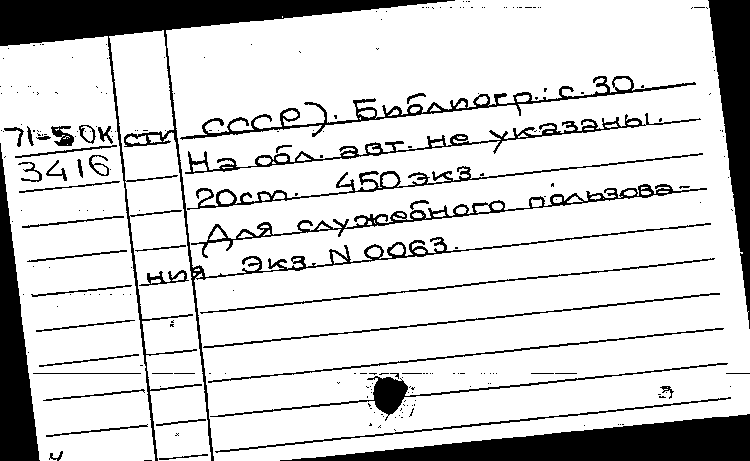 71-50К сти СССР). Библиогр.: с. 30.
3416 На обл. авт. не указаны.
20cm. 450 экз.
Для служебного пользова-
ния. Экз. N 0063.